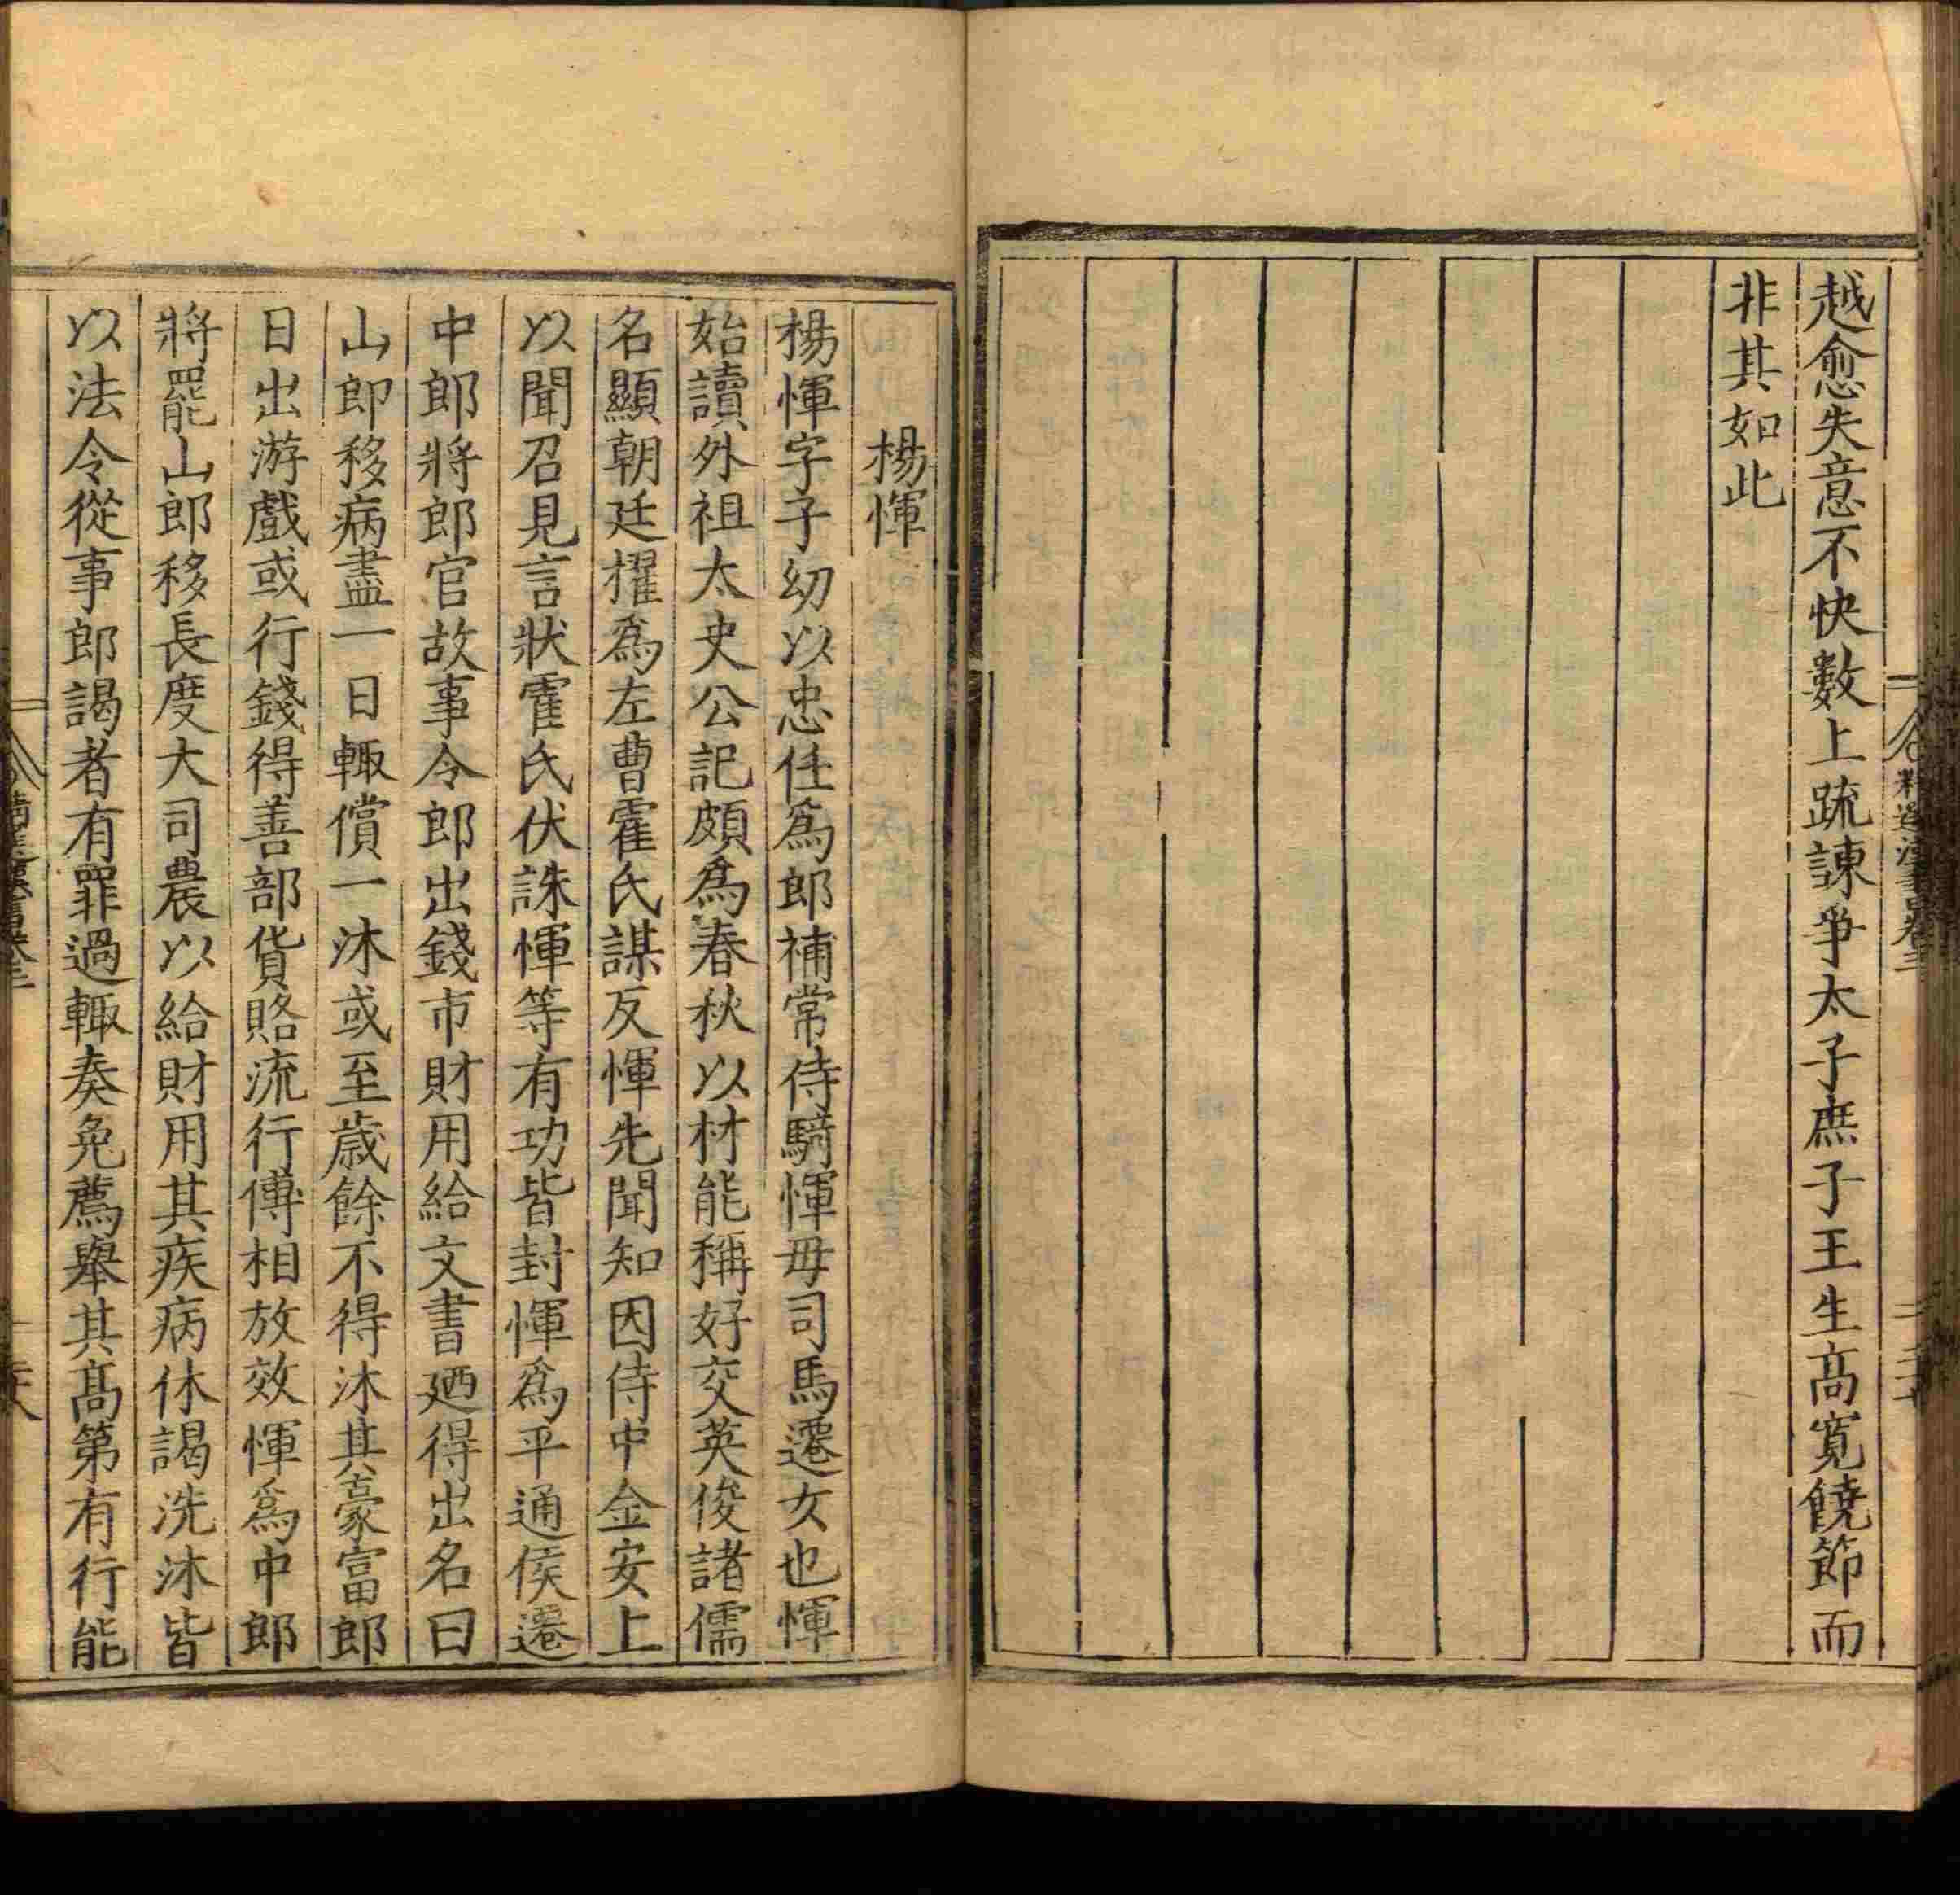 越愈失意不快數上疏諫爭太子庶子王生髙寛饒節而
非其如此
楊惲
楊惲字子幼以忠任爲郎補常侍騎惲毋司馬遷女也惲
始讀外祖太史公記頗爲春秋以材能稱好交英俊諸儒
名顯朝廷擢爲左曹霍氏謀反惲先聞知因侍中金安上
以聞召見言狀霍氏伏誅惲等有功皆封惲爲平通侯遷
中郎將郎官故事令郎出錢市財用給文書廼得出名曰
山郎移病盡一日輙償一沐或至歳餘不得沐其豪富郎
日出游戲或行錢得善部貨賂流行傳相放效惲爲中郎
將罷山郎移長度大司農以給財用其疾病休謁洗沐皆
以法令從事郎謁者有罪過輙奏免薦舉其髙第有行能